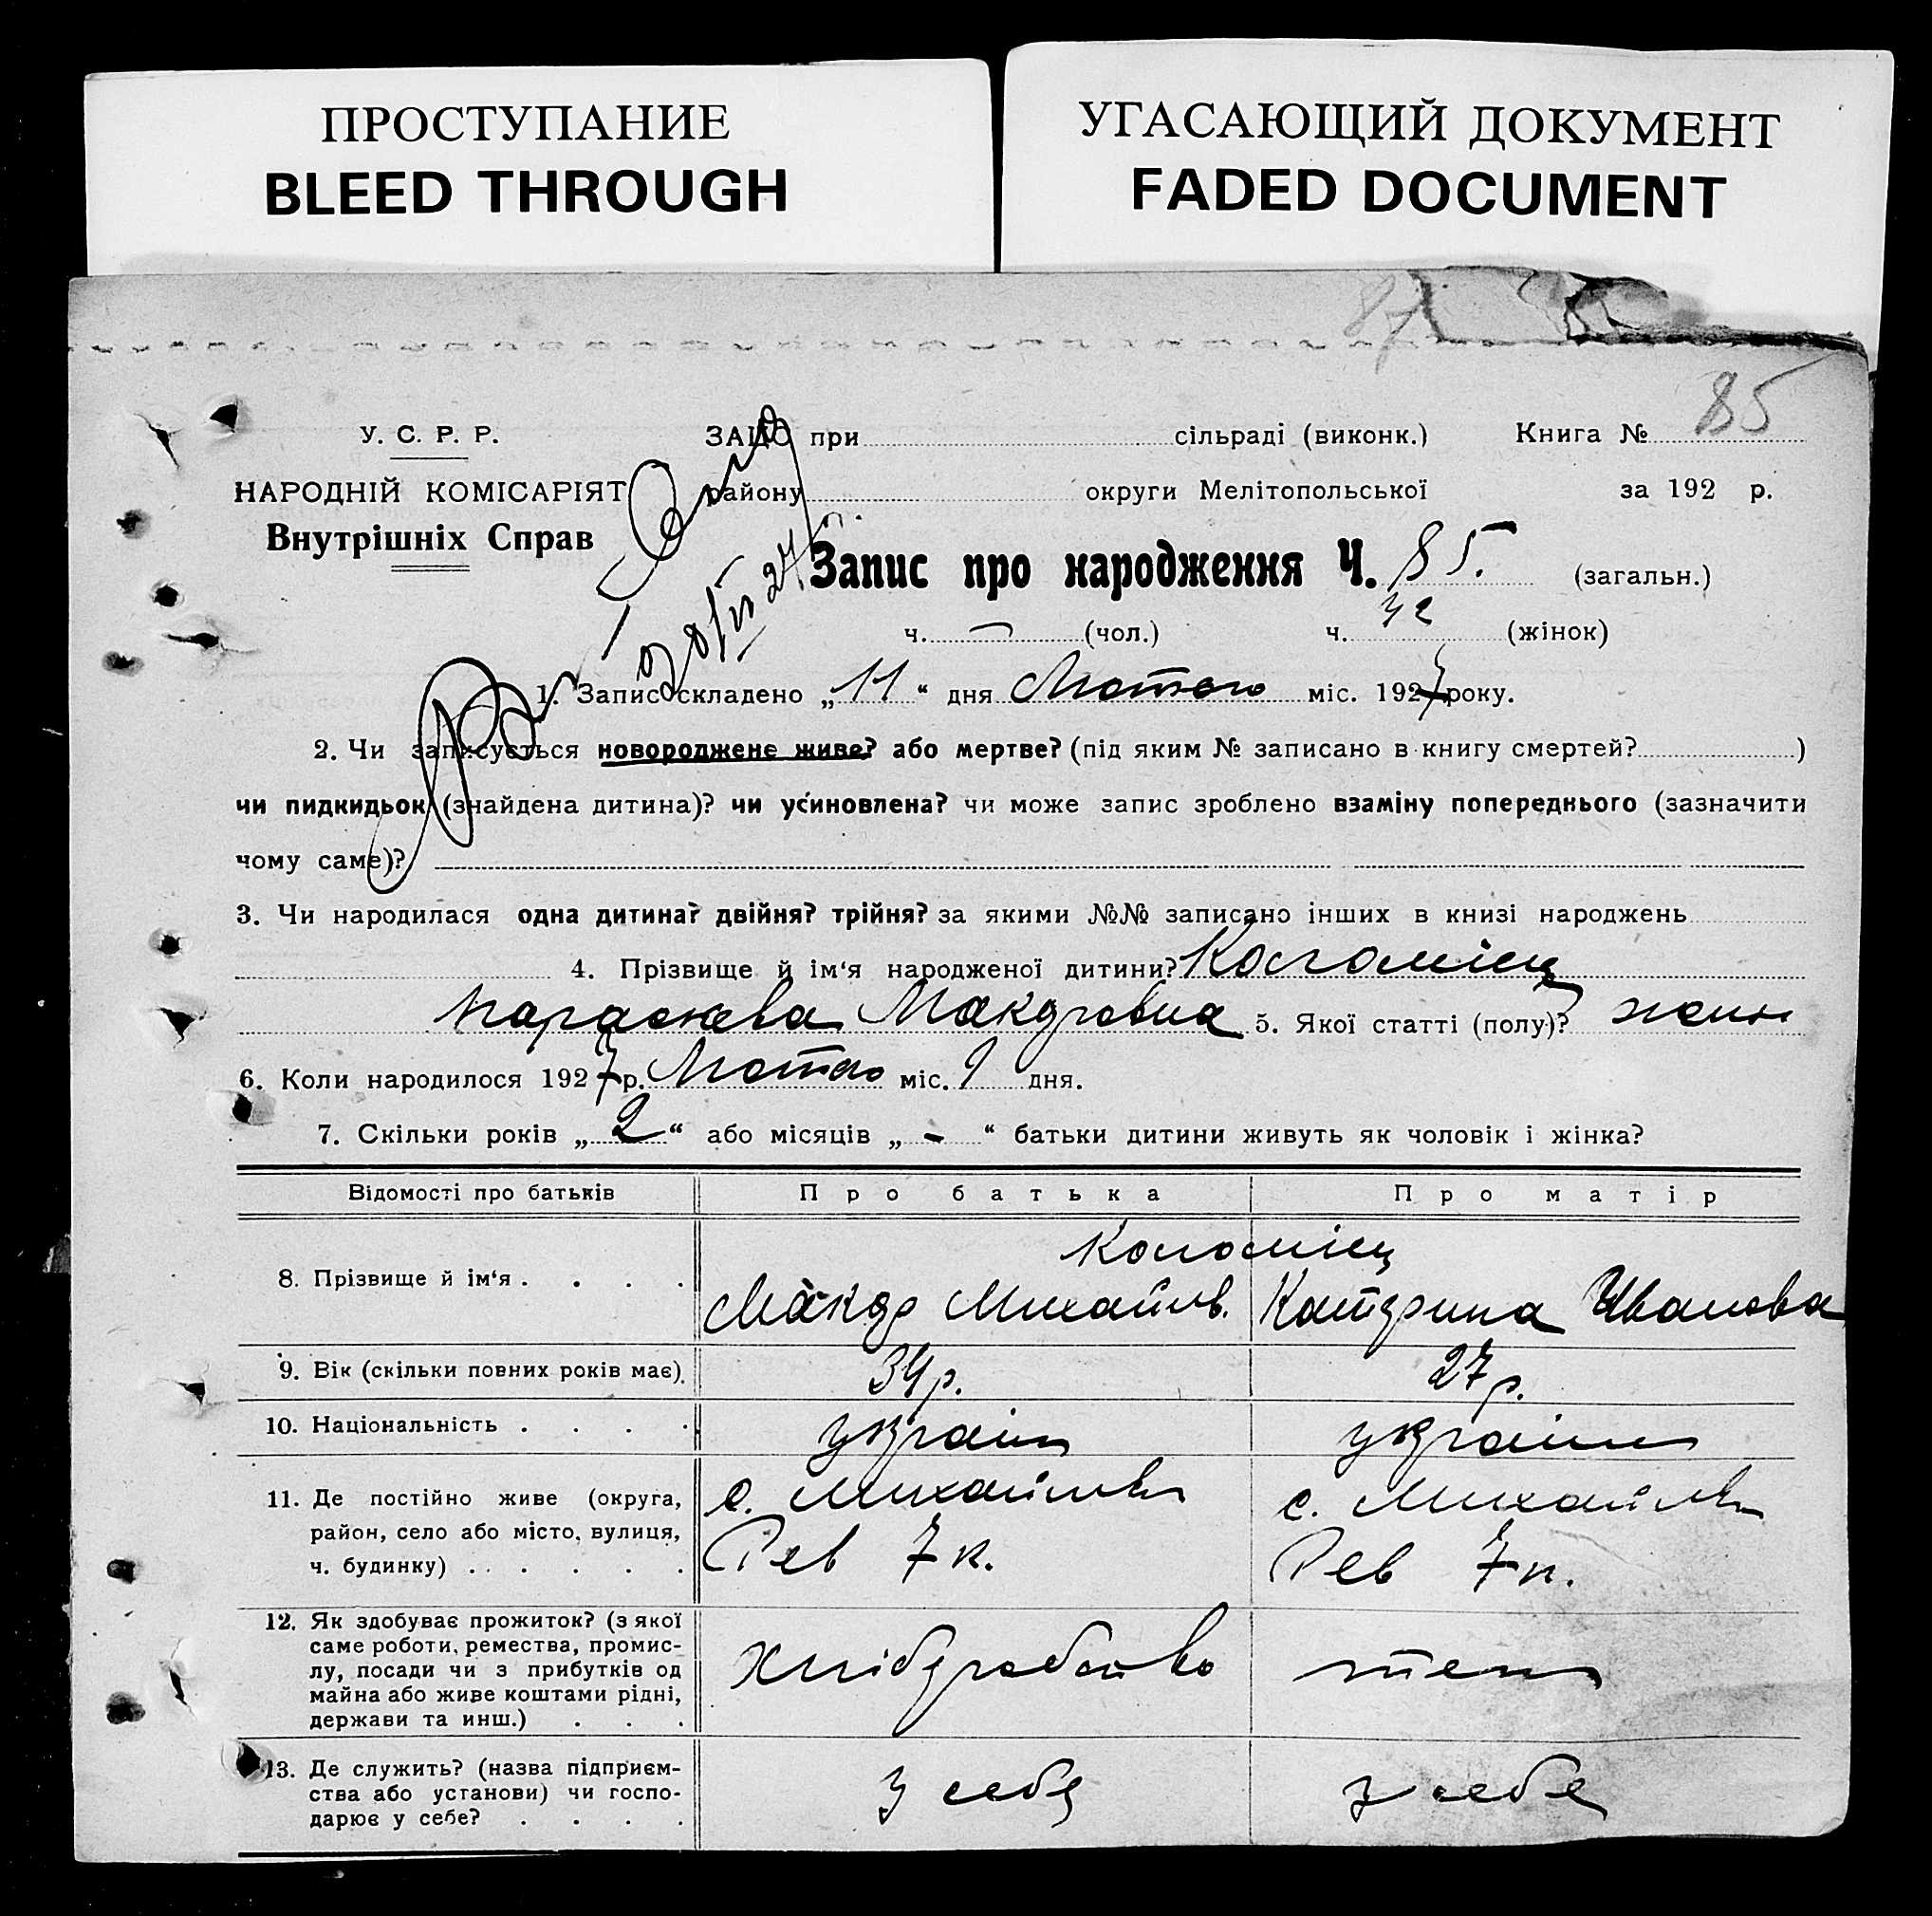 ПРОСТУПАНИЕ
BLEED THROUGH
УГАСАЮЩИЙ ДОКУМЕНТ
FADED DOCUMENT
87
85
У. С. Р. Р.
НАРОДНІЙ КОМІСАРІЯТ
Внутрішніх Справ
ЗАЦС при сільраді (виконк.) Книга №
району округи Мелітопольської за 192 р.
Запис про народження Ч. 85. (загальн.)
ч. — (чол.) ч. 42 (жінок)
1. Запис складено „11“ дня Лютого міс. 1927 року.
2. Чи записується новороджене живе? або мертве? (під яким № записано в книгу смертей? )
чи пидкидьок (знайдена дитина)? чи усиновлена? чи може запис зроблено взаміну попереднього (зазначити
чому саме)?
3. Чи народилася одна дитина? двійня? трійня? за якими №№ записано інших в книзі народжень
4. Прізвище й ім‘я народженої дитини? Коломіец
Параскева Макаровна 5. Якої статті (полу)? жин
6. Коли народилося 1927 р. Лютого міс. 9 дня.
7. Скільки років „2“ або місяців „-“ батьки дитини живуть як чоловік і жінка?
Відомості про батьків Про батька Про матір
8. Прізвище й ім‘я . . . . Коломіец
Макар Михайлов. Катерина Иванова
9. Вік (скільки повних років має). 34 р. 27 р.
10. Національність . . . . україн україн
11. Де постійно живе (округа,
район, село або місто, вулиця,
ч. будинку) . . . . .
с. Михайлівк
Рев 7 к.
с. Михайлівк
Рев 7 к.
12. Як здобуває прожиток? (з якої
саме роботи, ремества, промис-
лу, посади чи з прибутків од
майна або живе коштами рідні,
держави та инш.) . . .
хліборобство
теж
13. Де служить? (назва підприєм-
ства або установи) чи госпо-
дарює у себе? . . . .
у себе
у себе